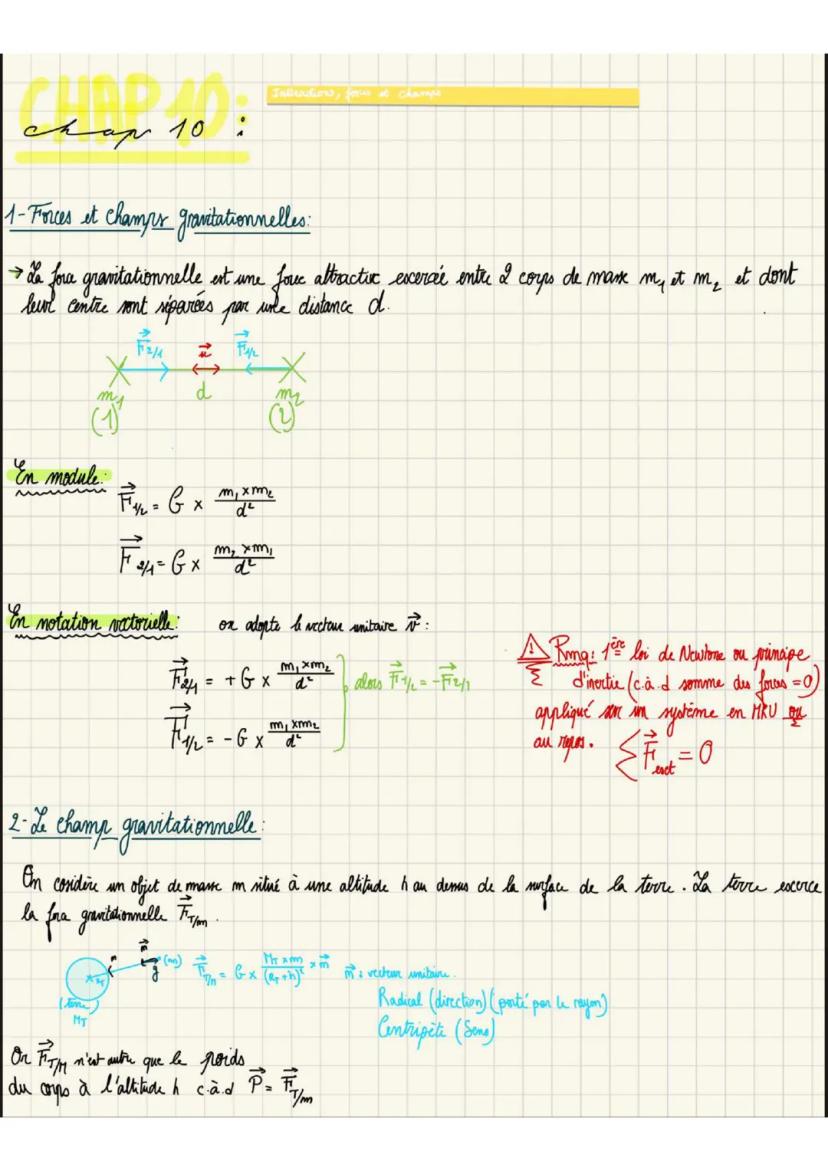 CHAP 10:
chap 10 :
Interactions, forces et champs
1- Forces et champs gravitationnelles:
→ La force gravitationnelle est une force attractive escercée entre 2 corps de masse m₁ et m₂ et dont
leur centre sont séparées par une distance d.
F⃗2/1 u⃗ F⃗1/2
m₁ d m₂
(1) (2)
En module:
F⃗1/2 = G × m₁×m₂/d²
F⃗2/1 = G × m₂×m₁/d²
En notation vectorielle: on adopte le vecteur unitaire :
F⃗2/1 = + G × m₁×m₂/d²
alors F⃗1/2 = -F⃗2/1
F⃗1/2 = - G × m₁×m₂/d²
⚠ Rmq: 1ère loi de Newtone ou principe
d'inertie (c.à.d somme des forces = 0)
appliqué sur un système en MRU ou
au repos. Σ F⃗ext = 0
2- Le champ gravitationnelle:
On considère un objet de masse m situé à une altitude h au dessus de la surface de la terre. La terre escerce
la force gravitationnelle F⃗T/m.
(m) F⃗T/m = G × MT×m/(RT+h)² × n⃗ n⃗ : vecteur unitaire.
g
(terre)
MT
Radical (direction) (porté par le rayon)
Centripète (Sens)
Or F⃗T/M n'est autre que le poids
du corps à l'altitude h c.à.d P⃗ = F⃗T/m